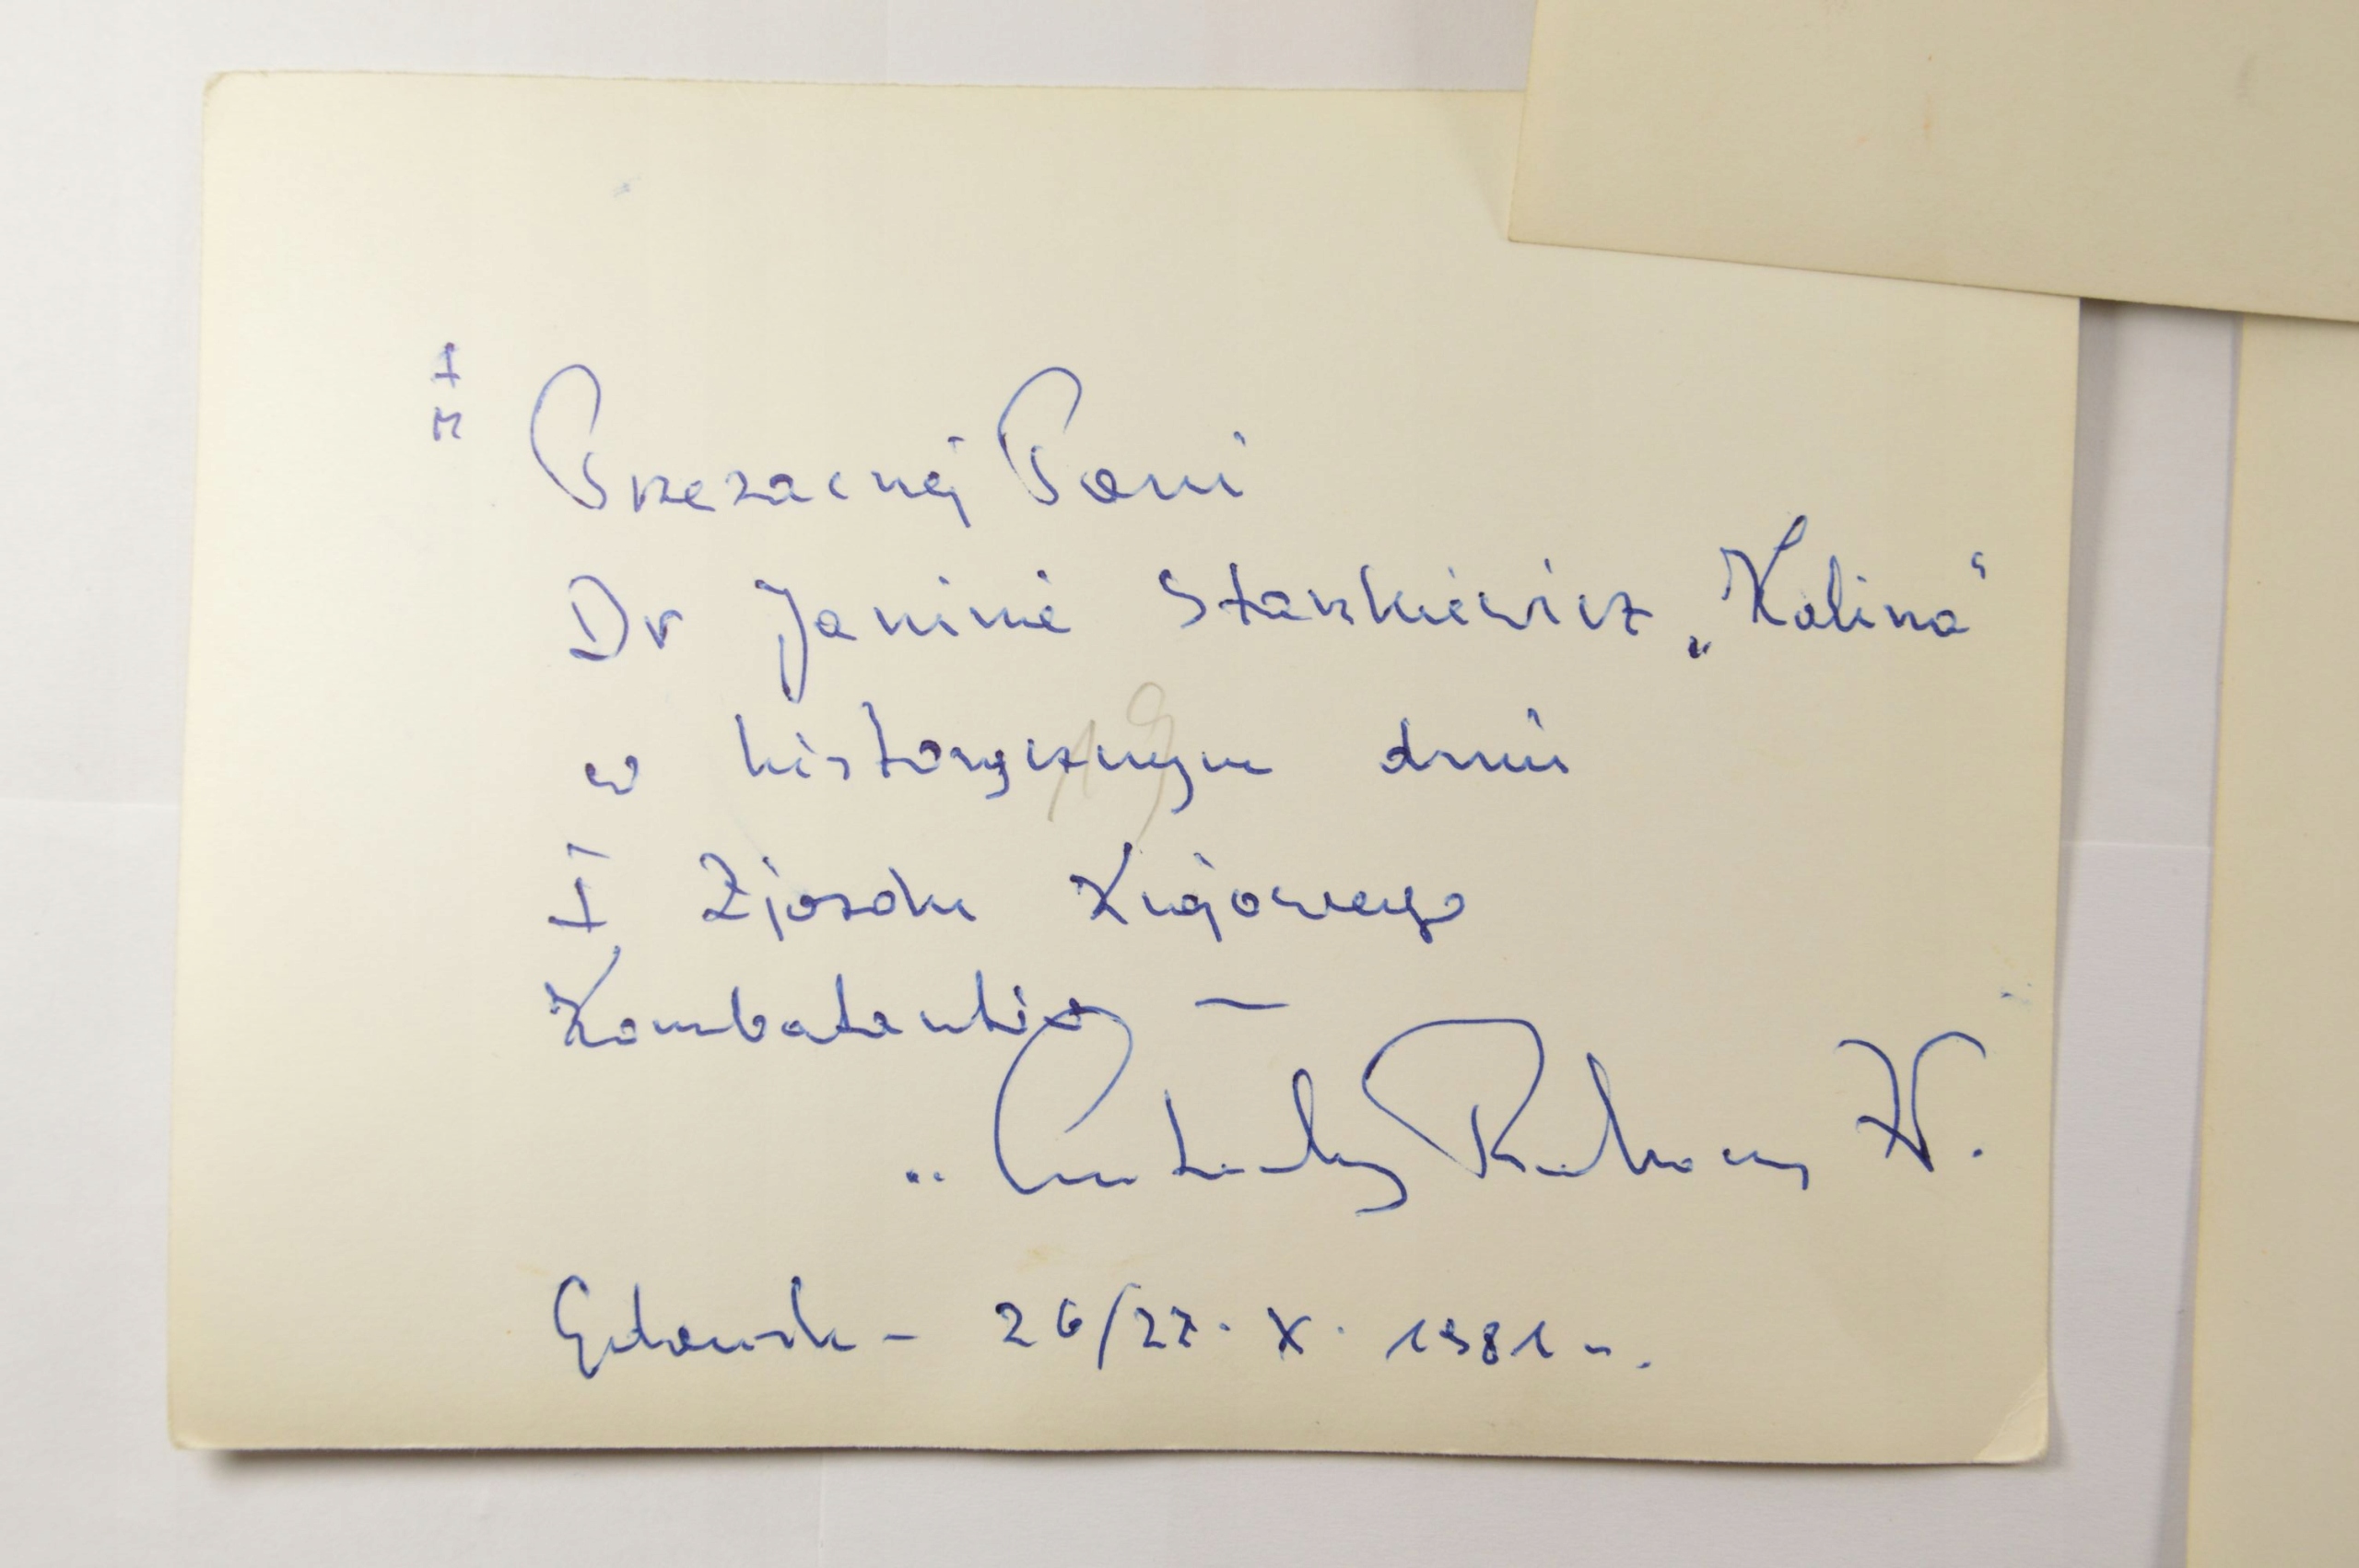 Przezacnej Pani
Dr Janinie Stankiewicz „Kalina”
w historycznym dniu
I Zjazdu Krajowego
Kombatantów —
Gdańsk – 26/27. X. 1981